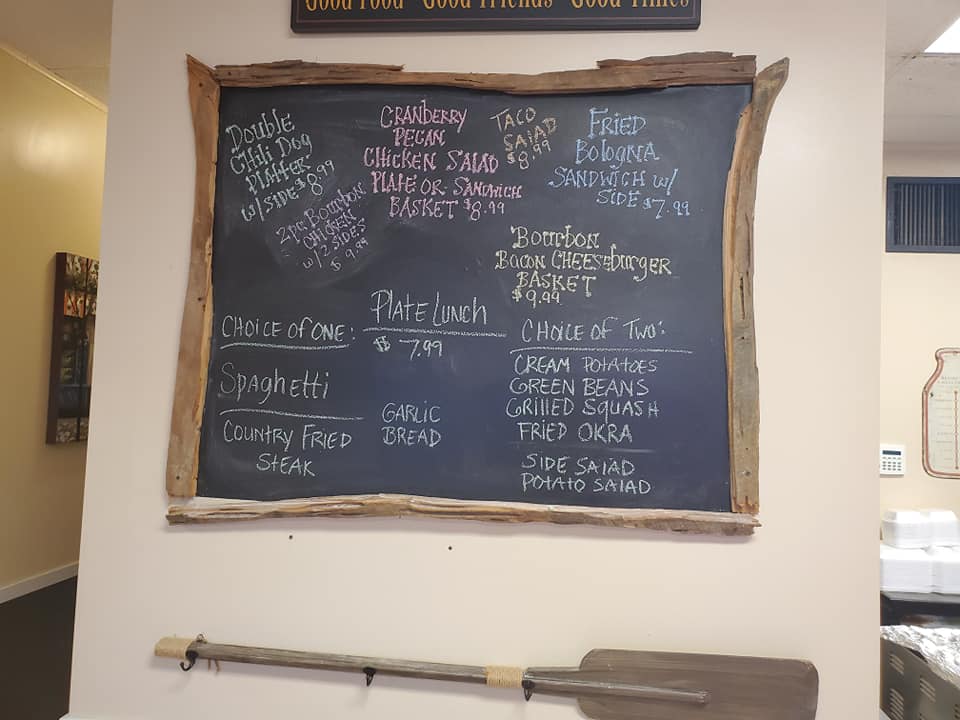 Good Food Good Friends Good Times
Double
Chili Dog
Platter
w/ SIDE $8.99
2pc. Bourbon
CHICKEN
w/ 2 SIDES
$ 9.99
CRANBERRY
PECAN
CHICKEN SALAD
PLATE OR SANDWICH
BASKET $8.99
TACO
SALAD
$8.99
FRIED
Bologna
SANDWICH w/
SIDE $7.99
Bourbon
BACON CHEESEburger
BASKET
$9.99
PLATE LUNCH
$ 7.99
CHOICE of ONE:
Spaghetti
COUNTRY FRIED
STEAK
GARLIC
BREAD
CHOICE OF TWO:
CREAM POTATOES
GREEN BEANS
GRILLED SQUASH
FRIED OKRA
SIDE SALAD
POTATO SALAD